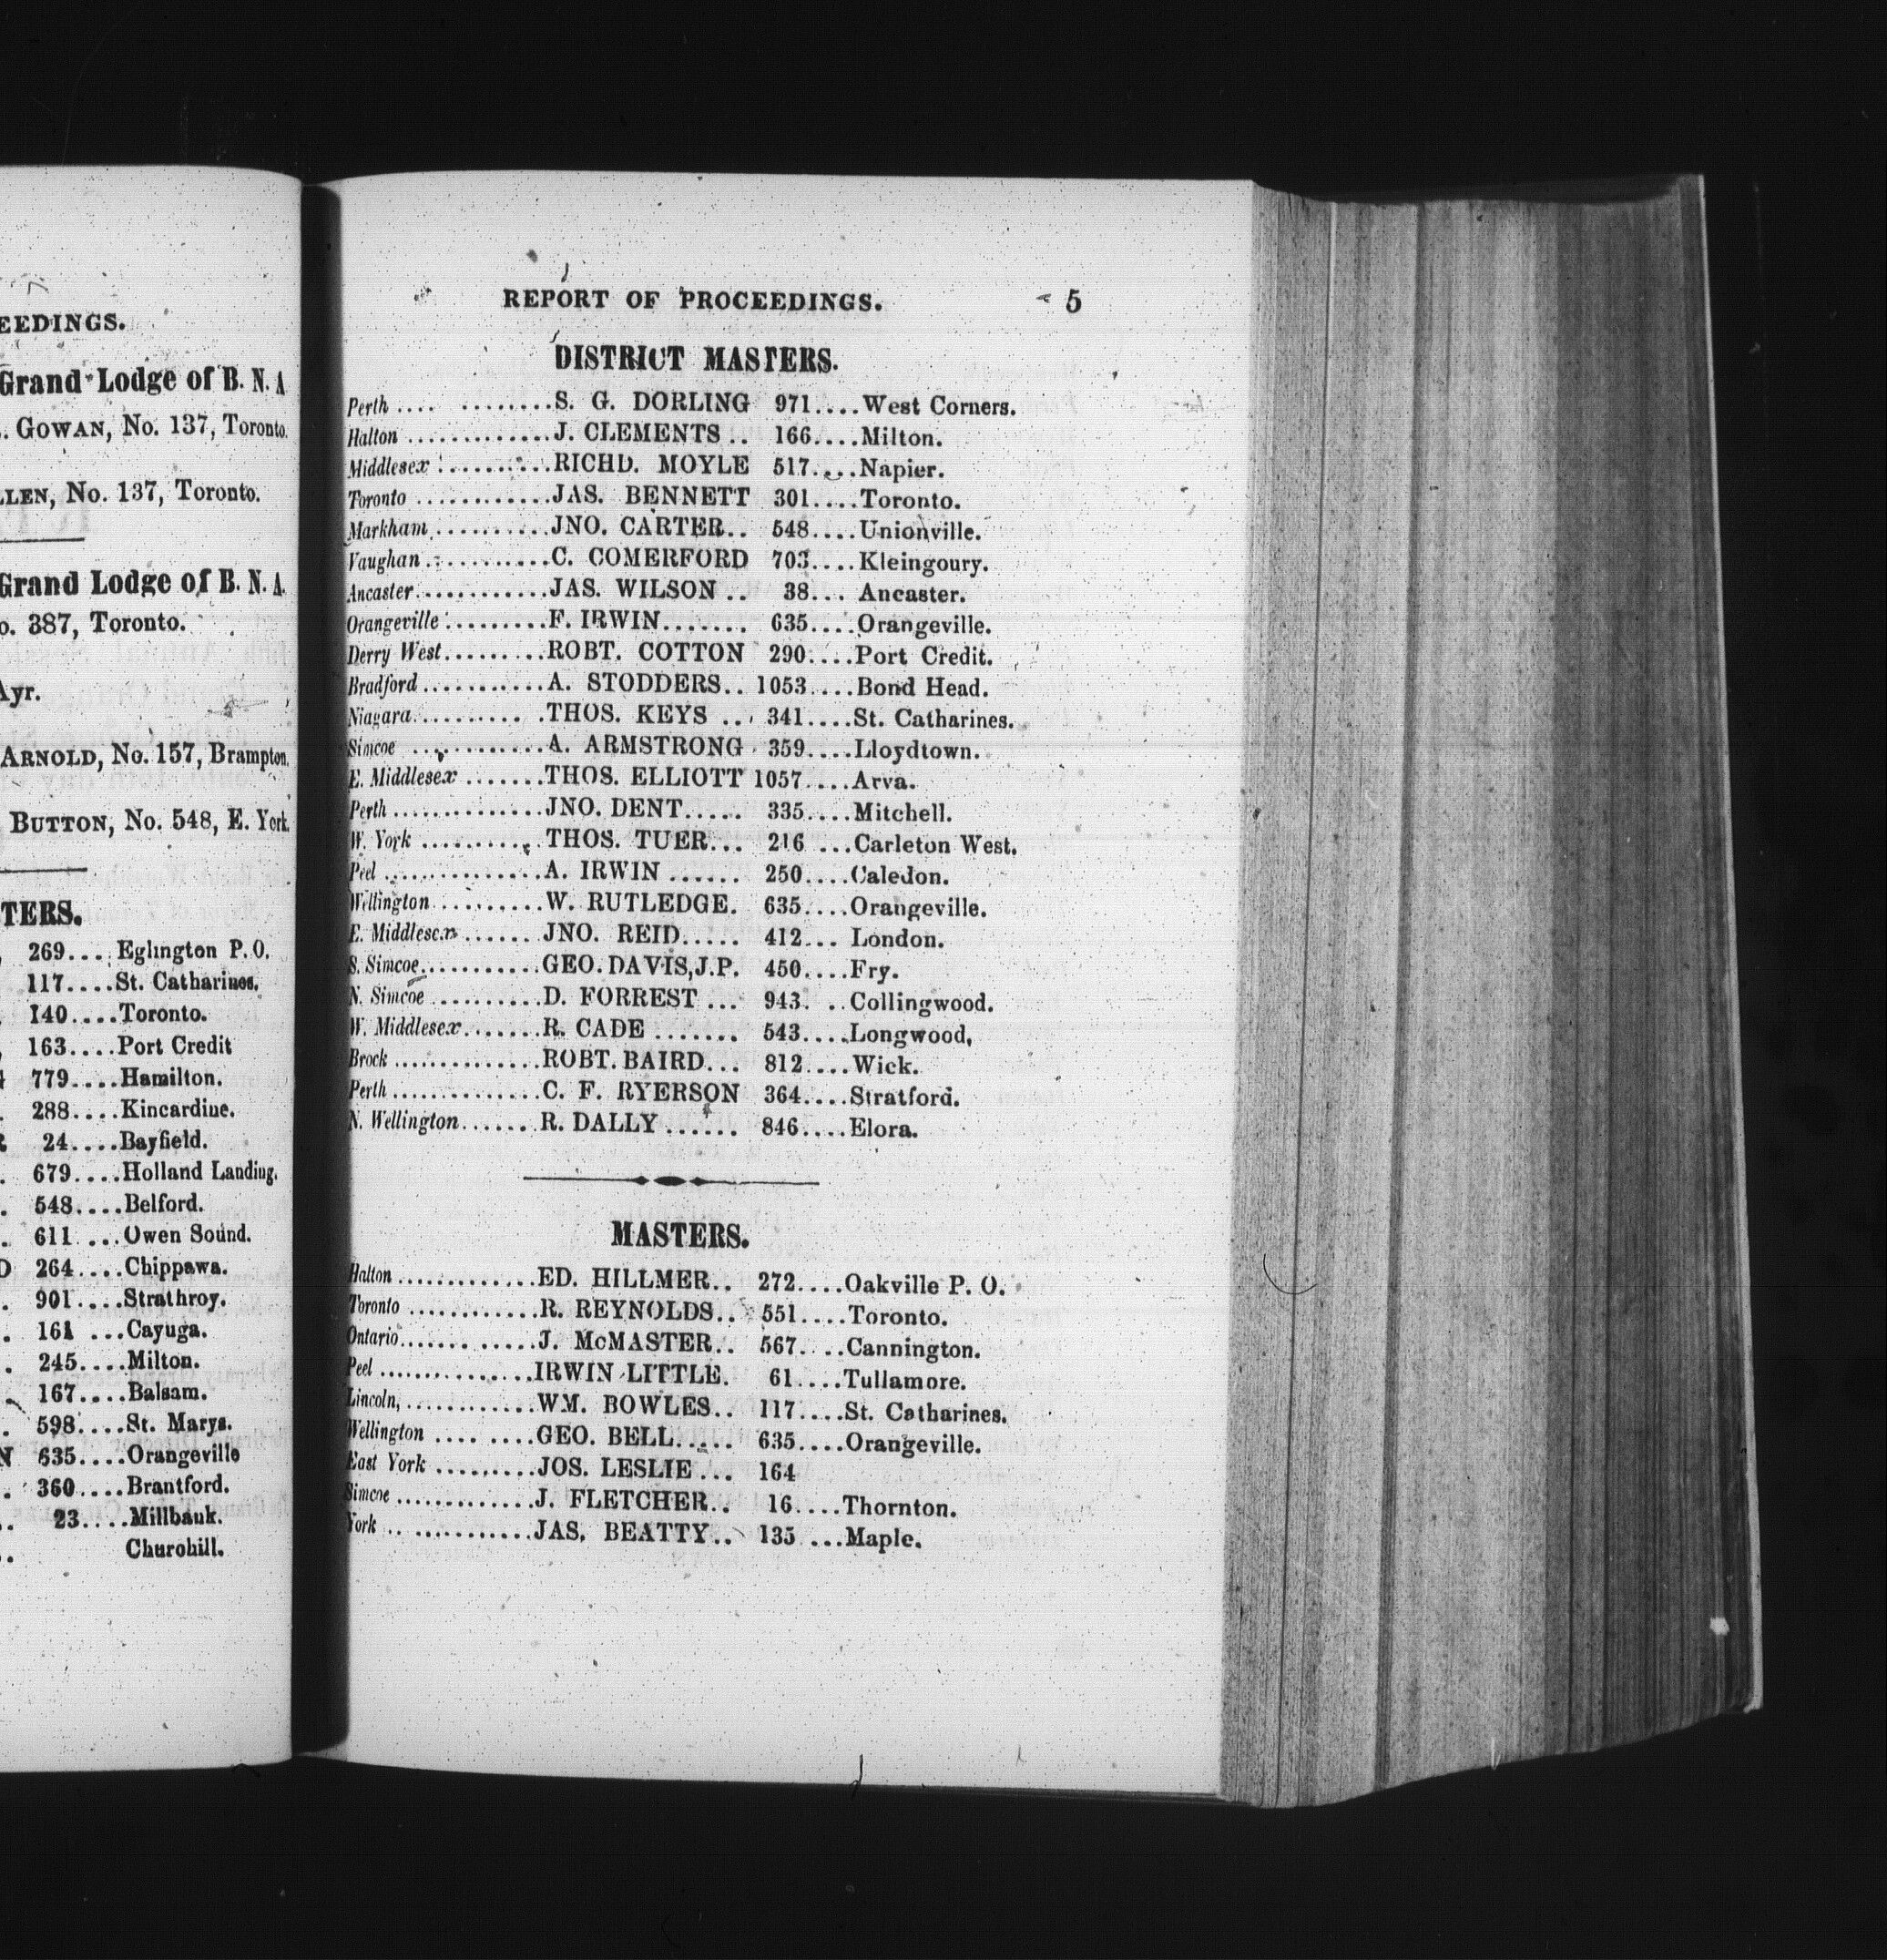 EEDINGS.
Grand Lodge of B. N. A
. GOWAN, No. 137, Toronto.
LLEN, No. 137, Toronto.
Grand Lodge of B. N. A.
o. 387, Toronto.
Ayr.
ARNOLD, No. 157, Brampton.
BUTTON, No. 548, E. York.
TERS.
269.... Eglington P. O.
117....St. Catharines.
140....Toronto.
163....Port Credit
779....Hamilton.
288....Kincardine.
24....Bayfield.
679....Holland Landing.
548....Belford.
611 ...Owen Sound.
264....Chippawa.
901....Strathroy.
161 ...Cayuga.
245....Milton.
167....Balsam.
598....St. Marys.
N 635....Orangeville
360....Brantford.
23....Millbank.
Churchill.
REPORT OF PROCEEDINGS. 5
DISTRICT MASTERS.
Perth .... ........S. G. DORLING 971....West Corners.
Halton .............J. CLEMENTS .. 166....Milton.
Middlesex ..........RICHD. MOYLE 517....Napier.
Toronto ............JAS. BENNETT 301....Toronto.
Markham...........JNO. CARTER.. 548....Unionville.
Vaughan ...........C. COMERFORD 703....Kleingoury.
Ancaster............JAS. WILSON .. 38... Ancaster.
Orangeville .........F. IRWIN....... 635....Orangeville.
Derry West.........ROBT. COTTON 290....Port Credit.
Bradford ...........A. STODDERS.. 1053....Bond Head.
Niagara.......... .THOS. KEYS .. 341....St. Catharines.
Simcoe .............A. ARMSTRONG 359....Lloydtown.
E. Middlesex .......THOS. ELLIOTT 1057....Arva.
Perth ..............JNO. DENT..... 335....Mitchell.
W. York ..........THOS. TUER... 216 ...Carleton West.
Peel ...............A. IRWIN ...... 250....Caledon.
Wellington ..........W. RUTLEDGE. 635....Orangeville.
E. Middlesex.......JNO. REID..... 412... London.
S. Simcoe...........GEO. DAVIS, J.P. 450....Fry.
N. Simcoe .........D. FORREST ... 943. ..Collingwood.
W. Middlesex.......R. CADE ....... 543....Longwood,
Brock ..............ROBT. BAIRD... 812....Wick.
Perth ..............C. F. RYERSON 364....Stratford.
N. Wellington.......R. DALLY ...... 846....Elora.
MASTERS.
Halton .............ED. HILLMER.. 272....Oakville P. O.
Toronto ............R. REYNOLDS.. 551....Toronto.
Ontario....... .....J. McMASTER.. 567....Cannington.
Peel ...............IRWIN LITTLE. 61....Tullamore.
Lincoln, ............WM. BOWLES.. 117....St. Catharines.
Wellington .... ....GEO. BELL..... 635....Orangeville.
East York .........JOS. LESLIE... 164
Simcoe .............J. FLETCHER.. 16....Thornton.
York .. ...........JAS. BEATTY.. 135 ...Maple.